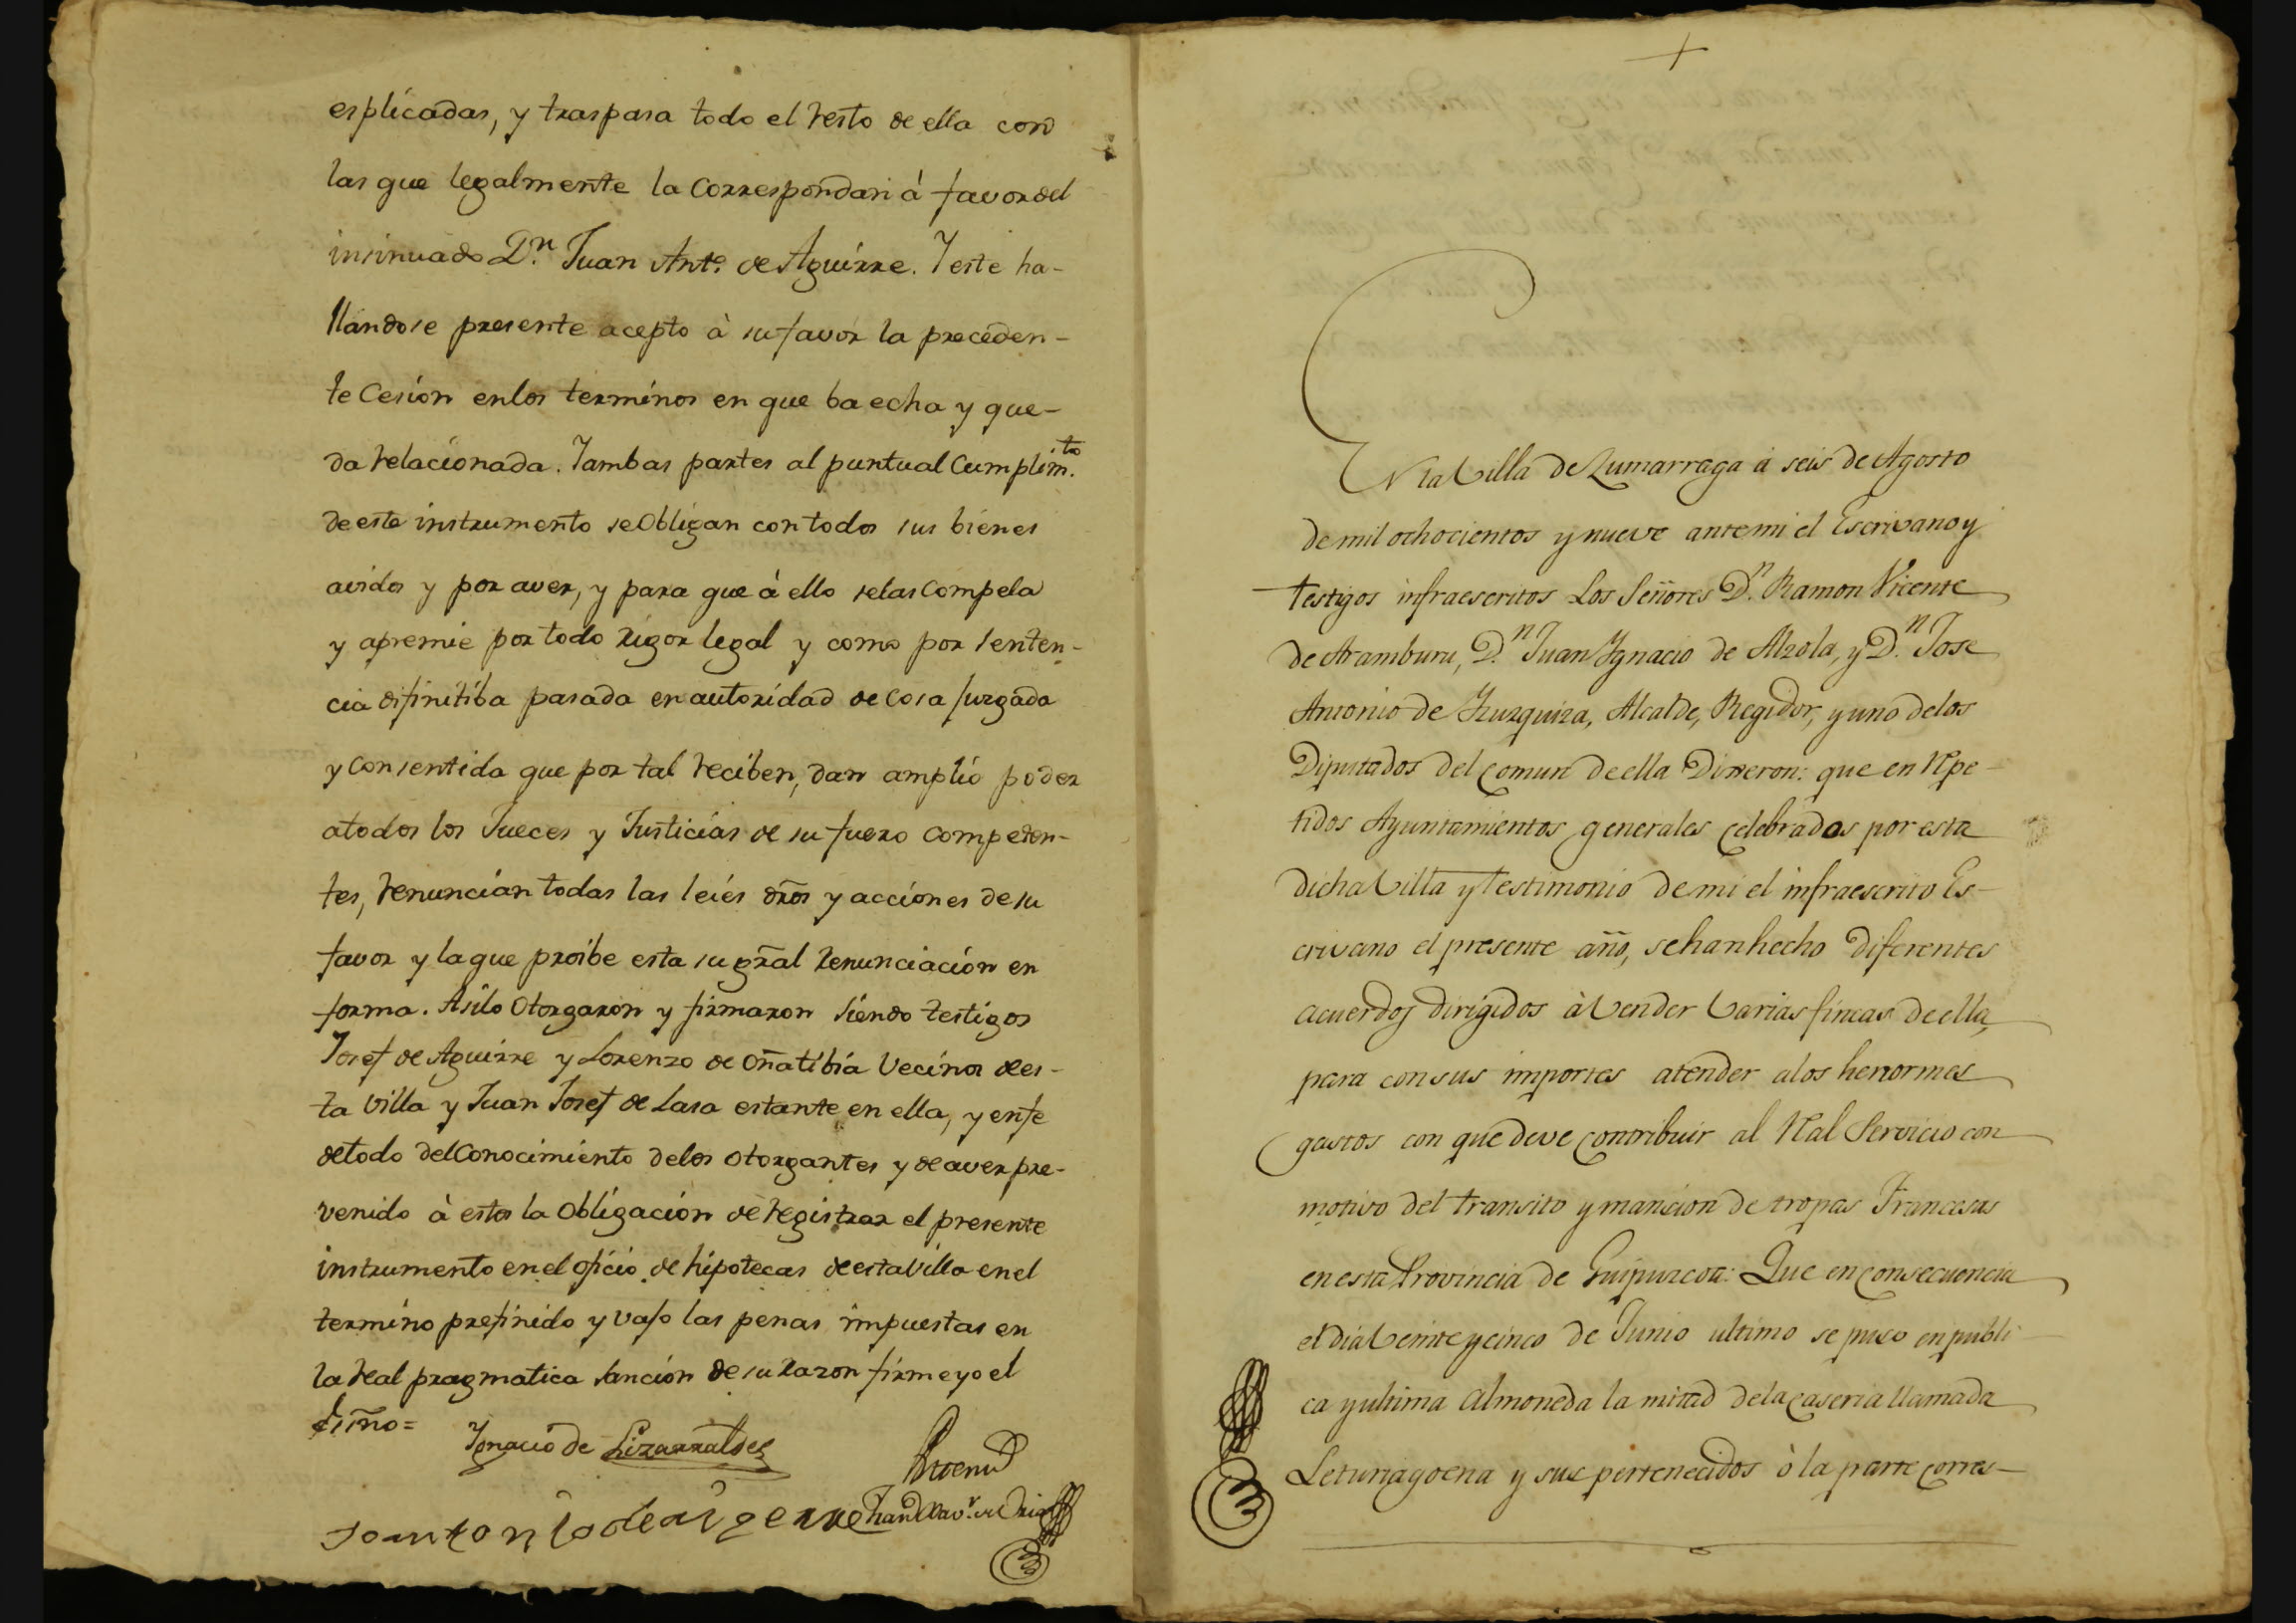 esplicadas, y traspasa todo el resto de ella con
las que legalmente la correspondan à favor del
insinuado D.n Juan Ant.o de Aguirre. Y este ha-
llandose presente acepto à su favor la preceden-
te Cesion enlos terminos en que ba echa y que-
da relacionada. Y ambas partes al puntual Cumplim.to
de este instrumento se obligan con todos sus bienes
avidos y por aver, y para que à ello se las compela
y apremie por todo rigor legal y como por senten-
cia difinitiba pasada en autoridad de cosa juzgada
y consentida que por tal reciben, dan amplio poder
atodos los Jueces y Justicias de su fuero competen-
tes, renuncian todas las leies dros y acciones de su
favor y la que proibe esta su gral renunciacion en
forma. Asilo otorgaron y firmaron siendo testigos
Josef de Aguirre y Lorenzo de Oñatibia Vecinos de es-
ta Villa y Juan Josef de Lasa estante en ella, y enfe
detodo del conocimiento delos otorgantes y de aver pre-
venido à estos la obligacion de registrar el presente
instrumento en el oficio de hipotecas de esta Villa en el
termino prefinido y vajo las penas impuestas en
la real pragmatica sancion de su razon firme yo el
essno=
Ygnacio de Lizarralde
Antemi
Joantonio de aigerre
+
EN la Villa de Zumarraga à seis de Agosto
de mil ochocientos y nueve ante mi el Escrivano y
testigos infraescritos Los Señores D.n Ramon Vicente
de Aramburu, D.n Juan Ygnacio de Alzola, y D.n Jose
Antonio de Yzuzquiza, Alcalde, Regidor, y uno delos
Diputados del comun de ella Dixeron: que en repe-
tidos Ayuntamientos generales celebrados por esta
dicha Villa y testimonio de mi el infraescrito Es-
crivano el presente año, sehan hecho diferentes
acuerdos dirigidos à Vender Varias fincas de ella,
para con sus importes atender alos henormes
gastos con que deve contribuir al Real Servicio con
motivo del transito y mansion de tropas Francesas
en esta Provincia de Guipuzcoa: Que en consecuencia
el dia Veinte y cinco de Junio ultimo se puso en publi
ca y ultima almoneda la mitad dela caseria llamada
Leturiagoena y sus pertenecidos ò la parte corres-